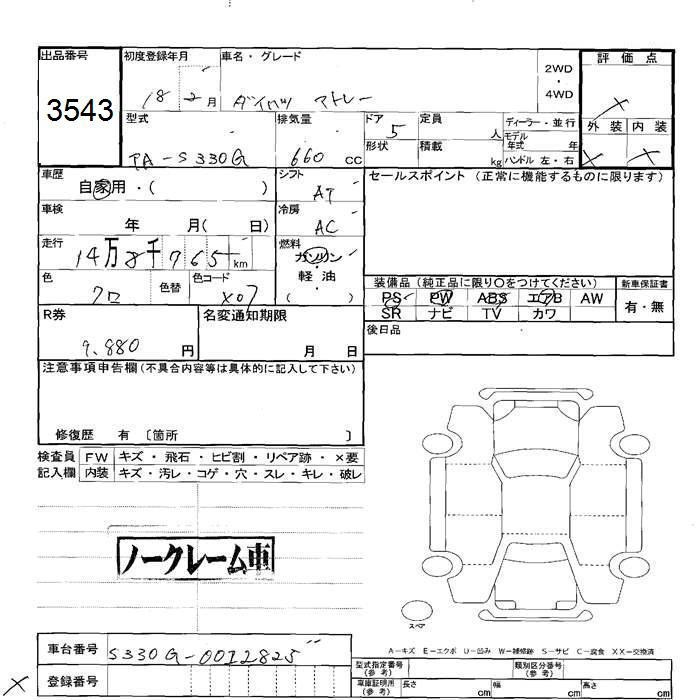 出品番号
3543
初度登録年月
18 2 月
車名・グレード
ダイハツ アトレー
2WD
・
4WD
評価点
外装 内装
型式
TA-S330G
排気量
660 cc
ドア
5
定員
人
ディーラー・並行
モデル
年式 年
形状
積載
kg
ハンドル 左・右
車歴
自家用・( )
シフト
AT
セールスポイント (正常に機能するものに限ります)
車検
年 月( 日)
冷房
AC
走行
14万8千765 km
燃料
ガソリン
・
軽油
( )
色
クロ
色替
色コード
X07
装備品 (純正品に限り〇をつけてください)
PS PW ABS エアB AW
SR ナビ TV カワ
新車保証書
有・無
R券
9,880 円
名変通知期限
月 日
後日品
注意事項申告欄 (不具合内容等は具体的に記入して下さい)
修復歴 有 〔箇所 〕
検査員
記入欄
FW キズ・飛石・ヒビ割・リペア跡・×要
内装 キズ・汚レ・コゲ・穴・スレ・キレ・破レ
ノークレーム車
スペア
A-キズ E-エクボ U-凹み W-補修跡 S-サビ C-腐食 XX-交換済
車台番号
S330G-0012825
登録番号
型式指定番号
(参考)
類別区分番号
(参考)
車庫証明用
(参考)
長さ cm
幅 cm
高さ cm